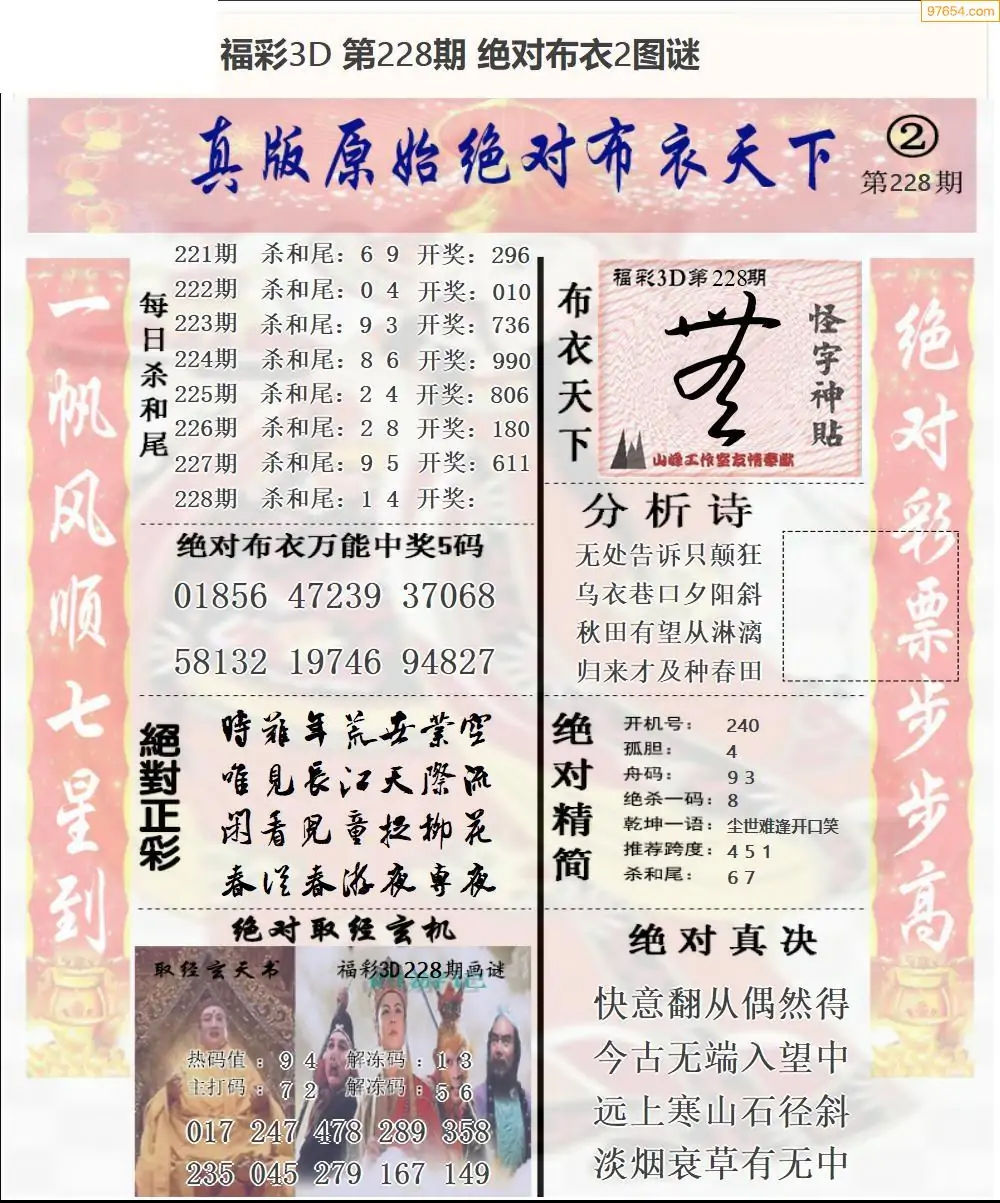 97654.com
福彩3D 第228期 绝对布衣2图谜
真版原始绝对布衣天下
②
第228期
一帆风顺七星到
每日杀和尾
221期 杀和尾：6 9 开奖：296
222期 杀和尾：0 4 开奖：010
223期 杀和尾：9 3 开奖：736
224期 杀和尾：8 6 开奖：990
225期 杀和尾：2 4 开奖：806
226期 杀和尾：2 8 开奖：180
227期 杀和尾：9 5 开奖：611
228期 杀和尾：1 4 开奖：
绝对布衣万能中奖5码
01856 47239 37068
58132 19746 94827
絕對正彩
時難年荒世業空
唯見長江天際流
閑看兒童捉柳花
春從春游夜專夜
绝对取经玄机
取经玄天书
福彩3D228期画谜
热码值：9 4 解冻码：1 3
主打码：7 2 解冻码：5 6
017 247 478 289 358
235 045 279 167 149
布衣天下
福彩3D第228期
怪字神貼
山峰工作室友情奉献
分析诗
无处告诉只颠狂
乌衣巷口夕阳斜
秋田有望从淋漓
归来才及种春田
绝对精简
开机号： 240
孤胆： 4
舟码： 9 3
绝杀一码：8
乾坤一语：尘世难逢开口笑
推荐跨度：4 5 1
杀和尾： 6 7
绝对真决
快意翻从偶然得
今古无端入望中
远上寒山石径斜
淡烟衰草有无中
绝对彩票步步高